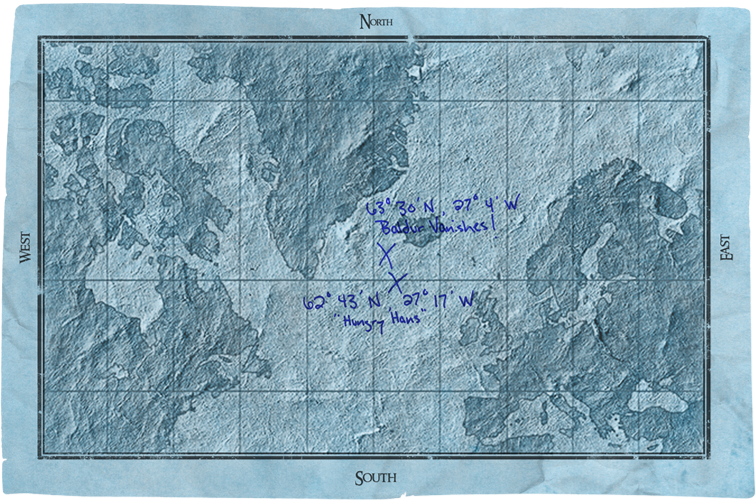 NORTH
WEST
63° 30' N, 27° 4' W
Baldur Vanishes!
EAST
62° 43' N 27° 17' W
"Hungry Hans"
SOUTH